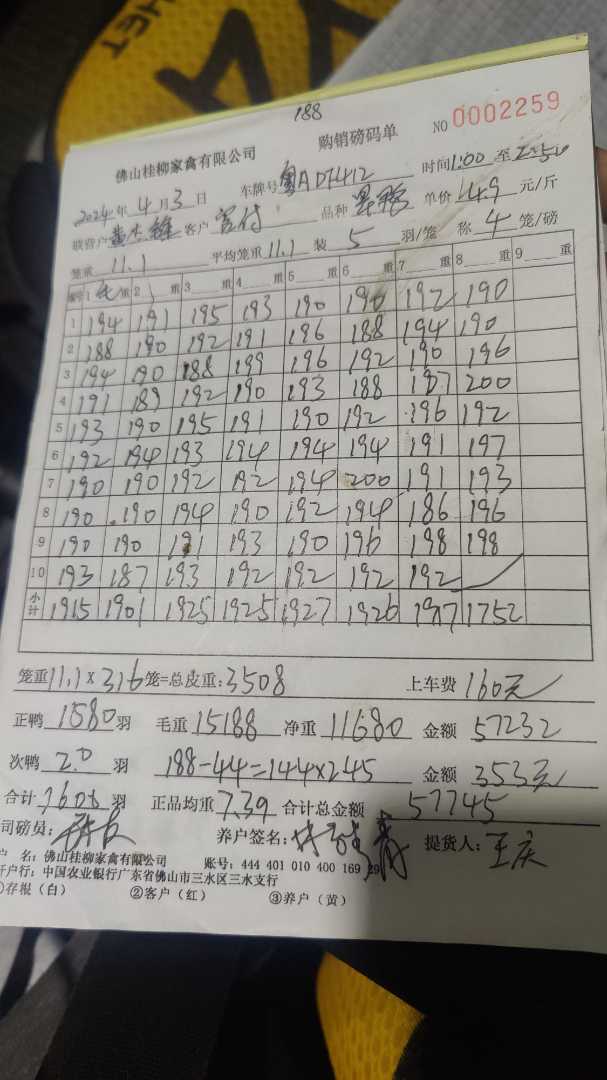 188
佛山桂柳家禽有限公司 购销磅码单 NO 0002259
2024年4月3日 车牌号粤ADF412 时间1:00至2:50
联营户 客户 品种 单价4.9元/斤
笼重11.1 平均笼重11.1 装5羽/笼 称4笼/磅
编号 1 重 2 重 3 重 4 重 5 重 6 重 7 重 8 重 9 重
1 194 191 195 193 190 190 192 190
2 188 190 192 191 196 188 194 190
3 194 190 188 199 196 192 190 196
4 191 189 192 190 193 188 187 200
5 193 190 195 191 190 192 196 192
6 192 194 193 194 194 194 191 197
7 190 190 192 192 194 200 191 193
8 190 190 194 190 192 194 186 196
9 190 190 191 193 190 196 198 198
10 193 187 193 192 192 192 192
小计 1915 1901 1925 1925 1927 1926 1917 1752
笼重11.1×316笼=总皮重:3508 上车费160元
正鸭1580羽 毛重15188 净重11680 金额57232
次鸭20羽 188-44=144×245 金额353元
合计1600羽 正品均重7.39 合计总金额57745
司磅员: 养户签名: 提货人:王庆
户 名: 佛山桂柳家禽有限公司 账号: 444 401 010 400 169 29
开户行: 中国农业银行广东省佛山市三水区三水支行
①存根（白） ②客户（红） ③养户（黄）